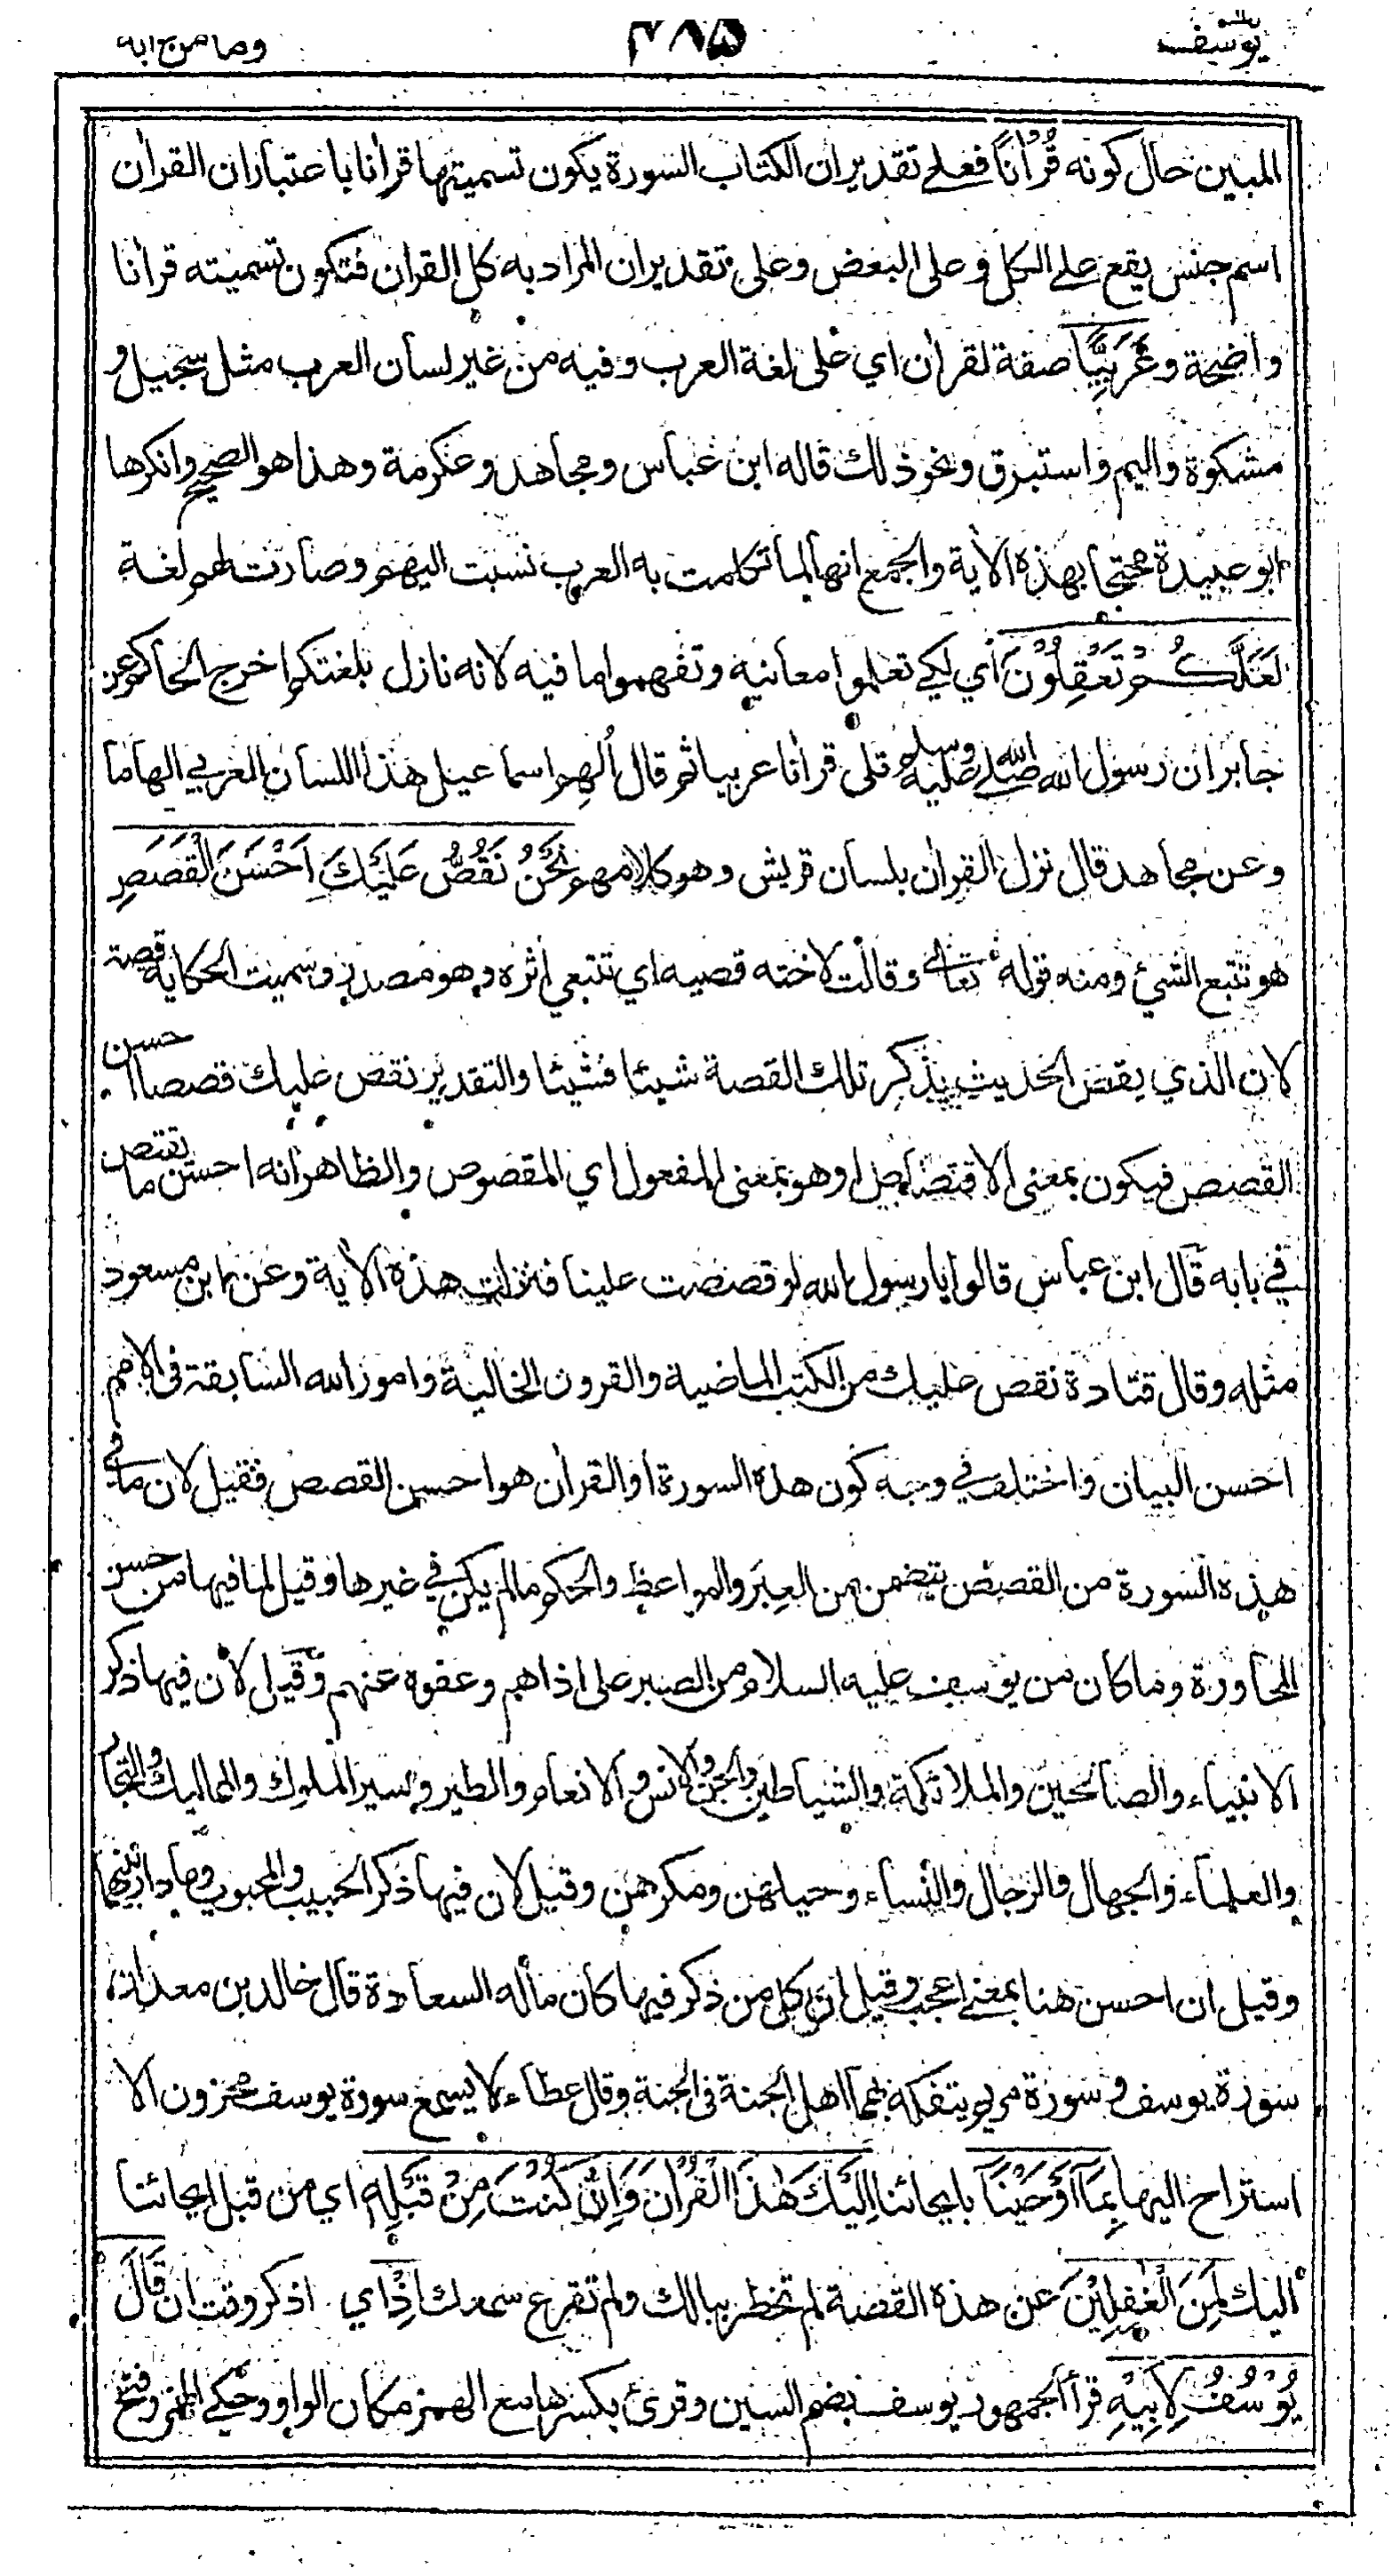 يوسف ٤٨٥ وما من دابة
المبين حال كونه قُرْاٰنًا فعلى تقدير ان الكتاب السورة يكون تسميتها قراٰنا باعتبار ان القراٰن
اسم جنس يقع على الكل و على البعض وعلى تقدير ان المراد به كل القراٰن فتكون تسميته قراٰنا
واضحة وعَرَبِيًّا صفة لقراٰن اي على لغة العرب وفيه من غير لسان العرب مثل سجيل و
مشكوة واليم واستبرق ونحو ذلك قاله ابن عباس ومجاهد وعكرمة وهذا هو الصحيح وانكرها
ابو عبيدة محتجا بهذه الاٰية والجمع انها لما تكلمت به العرب نسبت اليهم وصارت لهم لغة
لَعَلَّكُمْ تَعْقِلُوْنَ اي لكي تعلموا معانيه وتفهموا ما فيه لانه نازل بلغتكم اخرج الحاكم عن
جابر ان رسول الله صلى الله عليه وسلم تلى قراٰنا عربيا ثم قال اُلهِم اسماعيل هذا اللسان العربي الهاما
وعن مجاهد قال نزل القراٰن بلسان قريش وهو كلامهم نَحْنُ نَقُصُّ عَلَيْكَ اَحْسَنَ الْقَصَصِ
هو تتبع الشيئ ومنه قوله تعالى وقالت لاخته قصيه اي تتبعي اثره وهو مصدر وسميت الحكاية قصة
لان الذي يقص الحديث يذكر تلك القصة شيئا فشيئا والتقدير نقص عليك قصصا احسن
القصص فيكون بمعنى الاقتصاص او هو بمعنى المفعول اي المقصوص والظاهر انه احسن ما يقتص
في بابه قال ابن عباس قالوا يا رسول الله لو قصصت علينا فنزلت هذه الاٰية وعن ابن مسعود
مثله وقال قتادة نقص عليك من الكتب الماضية والقرون الخالية وامور الله السابقة فى الامم
احسن البيان واختلف في وجه كون هذه السورة او القراٰن هو احسن القصص فقيل لان ما في
هذه السورة من القصص يتضمن من العِبَر والمواعظ والحكم ما لم يكن في غيرها وقيل لما فيها من حسن
المحاورة وما كان من يوسف عليه السلام من الصبر على اذاهم وعفوه عنهم وقيل لان فيها ذكر
الانبياء والصالحين والملائكة والشياطين والجن والانس والانعام والطير وسير الملوك والمماليك والتجار
والعلماء والجهال والرجال والنساء وحيلهن ومكرهن وقيل لان فيها ذكر الحبيب والمحبوب وما دار بينهما
وقيل ان احسن هنا بمعنى اعجب وقيل ان كل من ذكر فيها كان مأله السعادة قال خالد بن معدان
سورة يوسف و سورة مريم يتفكه بهما اهل الجنة فى الجنة وقال عطاء لا يسمع سورة يوسف محزون الا
استراح اليها بِمَآ اَوْحَيْنَآ بايحائنا اِلَيْكَ هٰذَا الْقُرْاٰنَ وَاِنْ كُنْتَ مِنْ قَبْلِهٖ اي من قبل ايحائنا
اليك لَمِنَ الْغٰفِلِيْنَ عن هذه القصة لم تخطر ببالك ولم تقرع سمعك اِذْ اي اذكر وقت ان قَالَ
يُوْسُفُ لِاَبِيْهِ قرأ الجمهور يوسف بضم السين وقرئ بكسرها مع الهمز مكان الواو وحكي الهمز وفتح